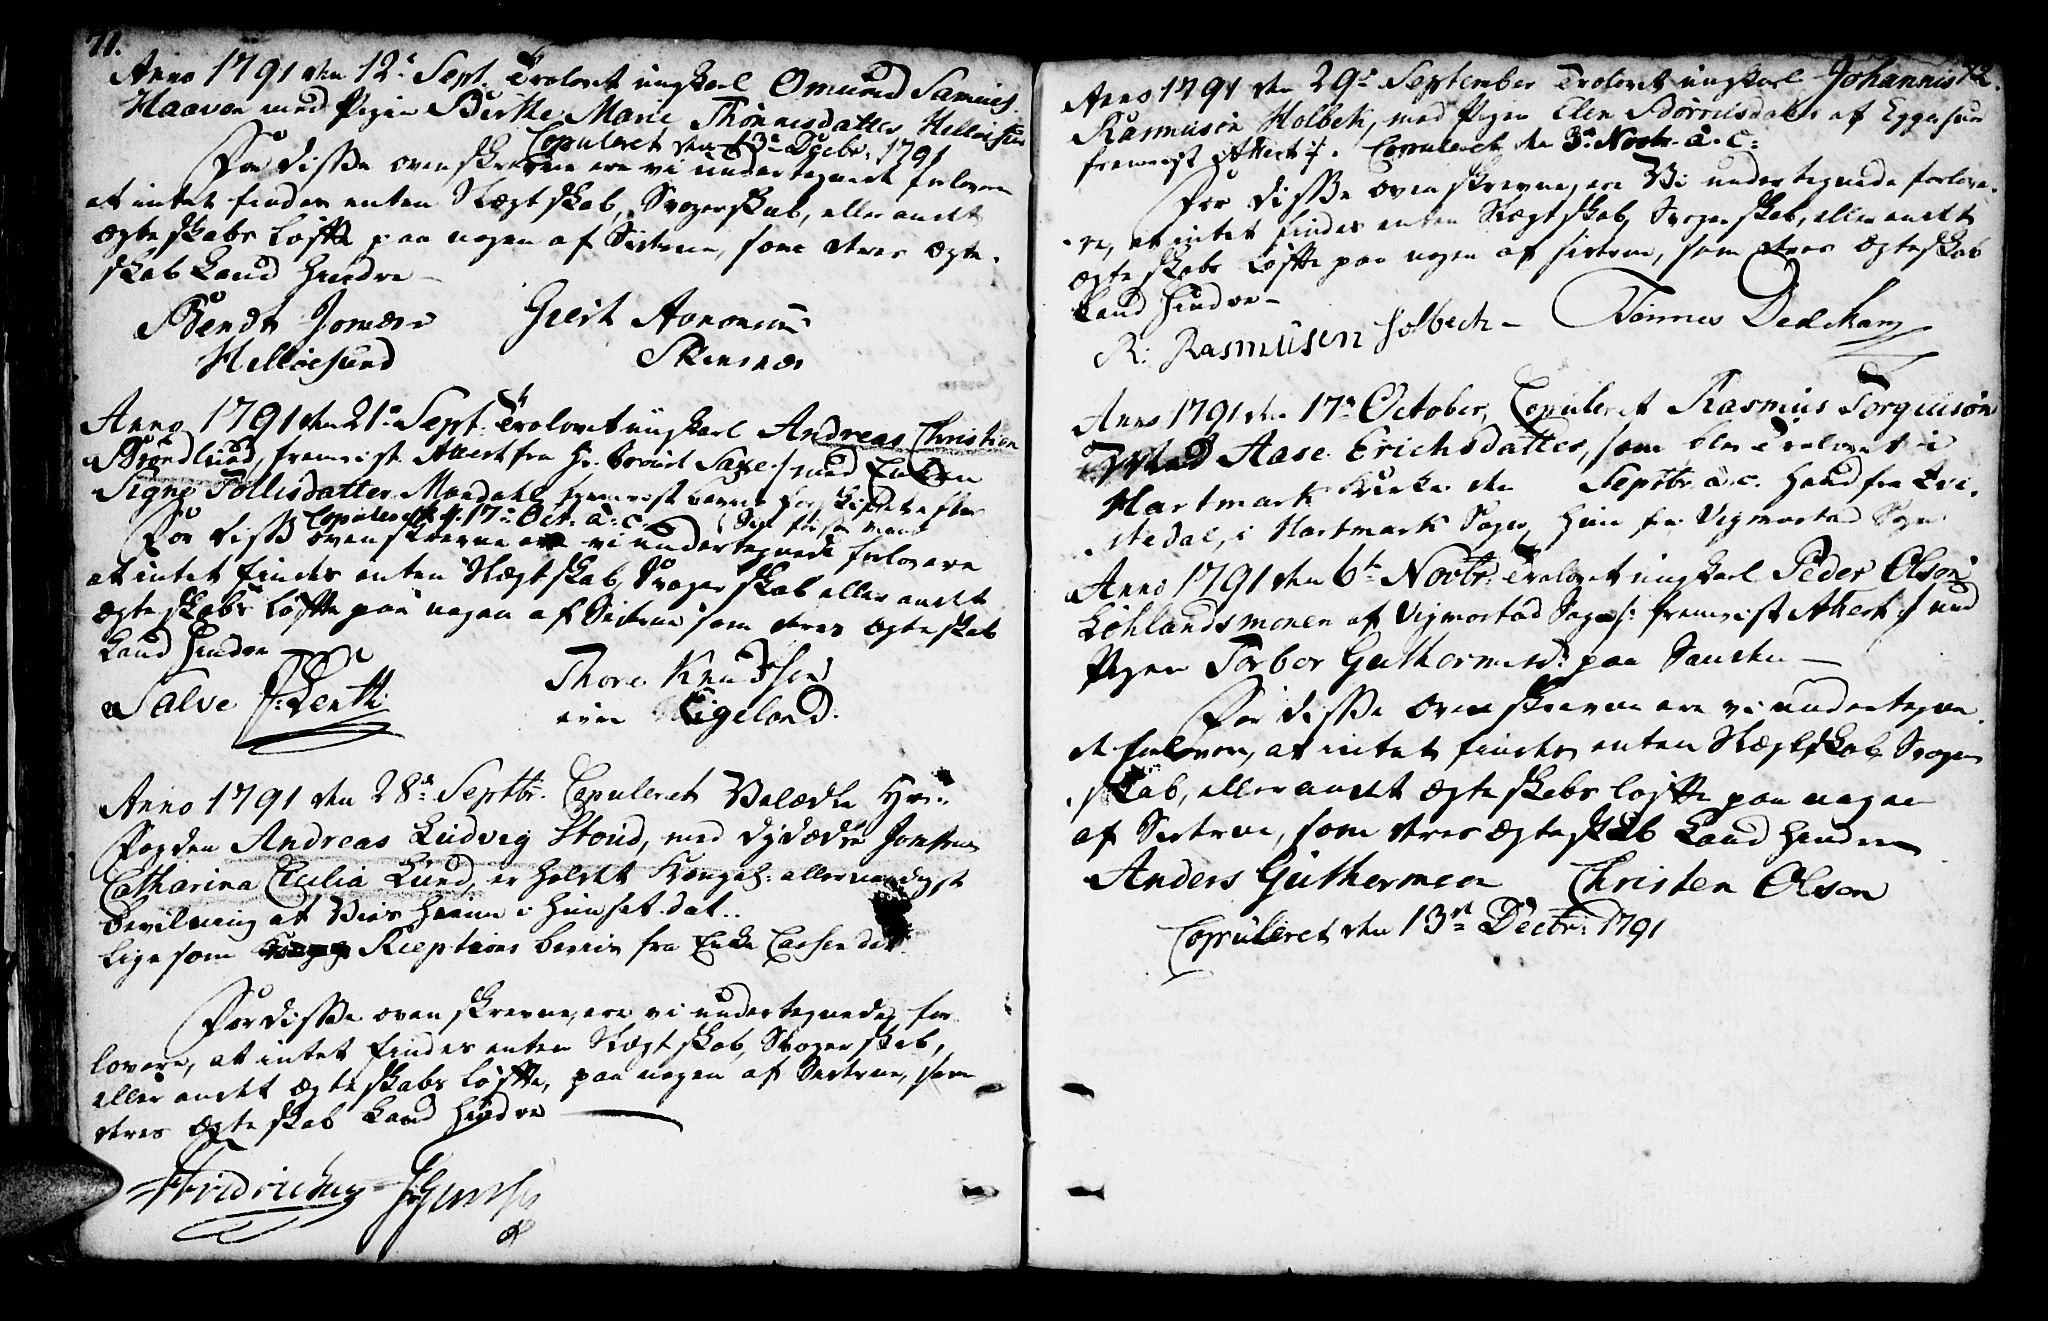 71.
Anno 1791 den 12te Sept. Trolovet ungkarl Omund Samuels.
Haaven med Pigen Birthe Marie Thønnesdatter Helløesund
Copuleret den 13de Decbr. 1791
For disse ovenskrevne ere vi undertegnede forlovere
at intet findes enten Slægtskab, Svogerskab, eller andet
Ægteskabs Løfte paa nogen af Siderne, som deres Ægte-
skab kand hindre
Bendt Jonæsen Geert Aanonsen
Helloesund Skiernøe
Anno 1791 den 21de Sept. Trolovet ungkarl Andreas Christian
Brøndlund, fremvist Attest fra Hr. Provst Saxe /med Enken
Signe Tollisdatter Mandahl fremvist beviis for Skiftet efter
Copuleret d. 17de Oct. a. c. Sin første mand
For disse ovenskrevne ere vi undertegnede forlovere
at intet findes enten Slægtskab, Svogerskab eller andet
Ægteskabs Løfte paa nogen af Siderne som deres Ægteskab
kand hindre
Salve Thore Knudsen
Eigeland.
Anno 1791 den 28de Septbr. Copuleret Velædle Hr.
Fogden Andreas Ludvig Stoud, med dydædle Jomfrue
Catharina Cecilia Lund, er holdt Kongel. allernaadigst
bevilning at Vies hiemme i Huuset. dat..
lige som Receptions beviis fra Enke Cassen dat.
For disse ovenskrevne, ere vi undertegnede for-
lovere, at intet findes enten Slægtskab, Svogerskab,
eller andet Ægteskabs Løfte, paa nogen af Siderne, som
deres Ægteskab kand hindre
Anno 1791 den 29de September Trolovet ungkarl Johannis 72.
Rasmusøn Holbech, med Pigen Elen Børrulsdatter af Eggersund
fremvist Attest /. Copuleret den 3de Novbr. a. c:
For disse ovenskrevne, ere Vi undertegnede forlove-
re, at intet findes enten Slægtskab, Svogerskab, eller andet
Ægteskabs Løfte paa nogen af siderne, som deres Ægteskab
kand hindre
R: Rasmusen Holbech Tønnes Dedekam
Anno 1791 den 17de October, Copuleret Rasmus Torgiusøn
Aase Erichsdatter, som blev Trolovet i
Hartmark Kirke den Septbr. a. c. Hand fra
stedal, i Hartmark Sogn, Hun fra Vigmostad Sogn
Anno 1791 den 6te Novbr. Trolovet ungkarl Peder Olson
Løhlandsmonen af Vigmostad Sogn /: fremvist Attest / med
Pigen Torbor Guthormsd: paa
For disse ovenskrevne ere vi undertegne-
de forlovere, at intet findes enten Slægtskab, Svoger-
skab, eller andet Ægteskabs løfte paa nogen
af Siderne, som deres Ægteskab kand hindre
Anders Guthormsen Christen Olson
Copuleret den 13de Decbr: 1791